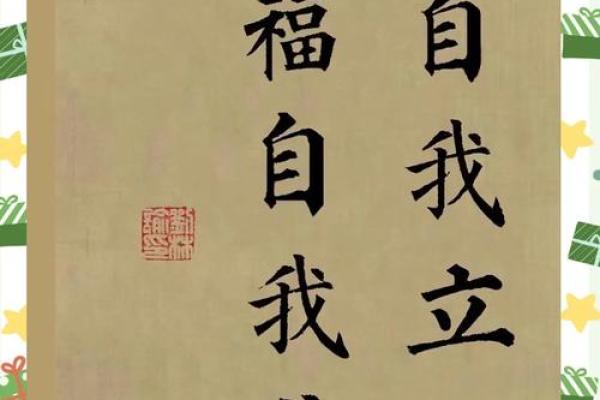 自我立
福自我